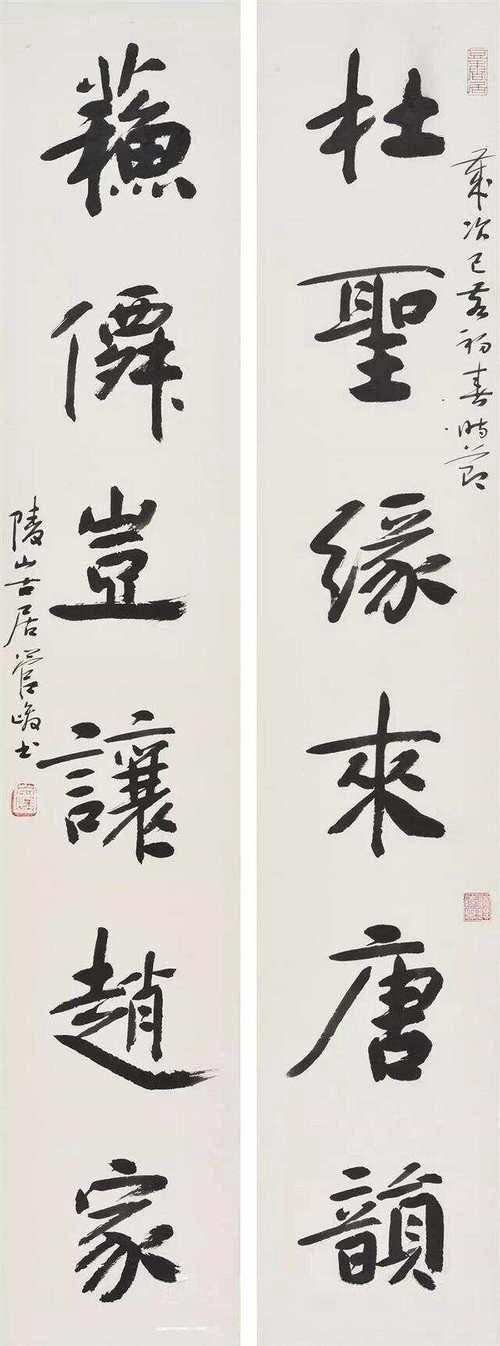 歲次己亥初春時節
杜聖緣來唐韻
蘓僊豈讓趙家
陵山古居管峻书